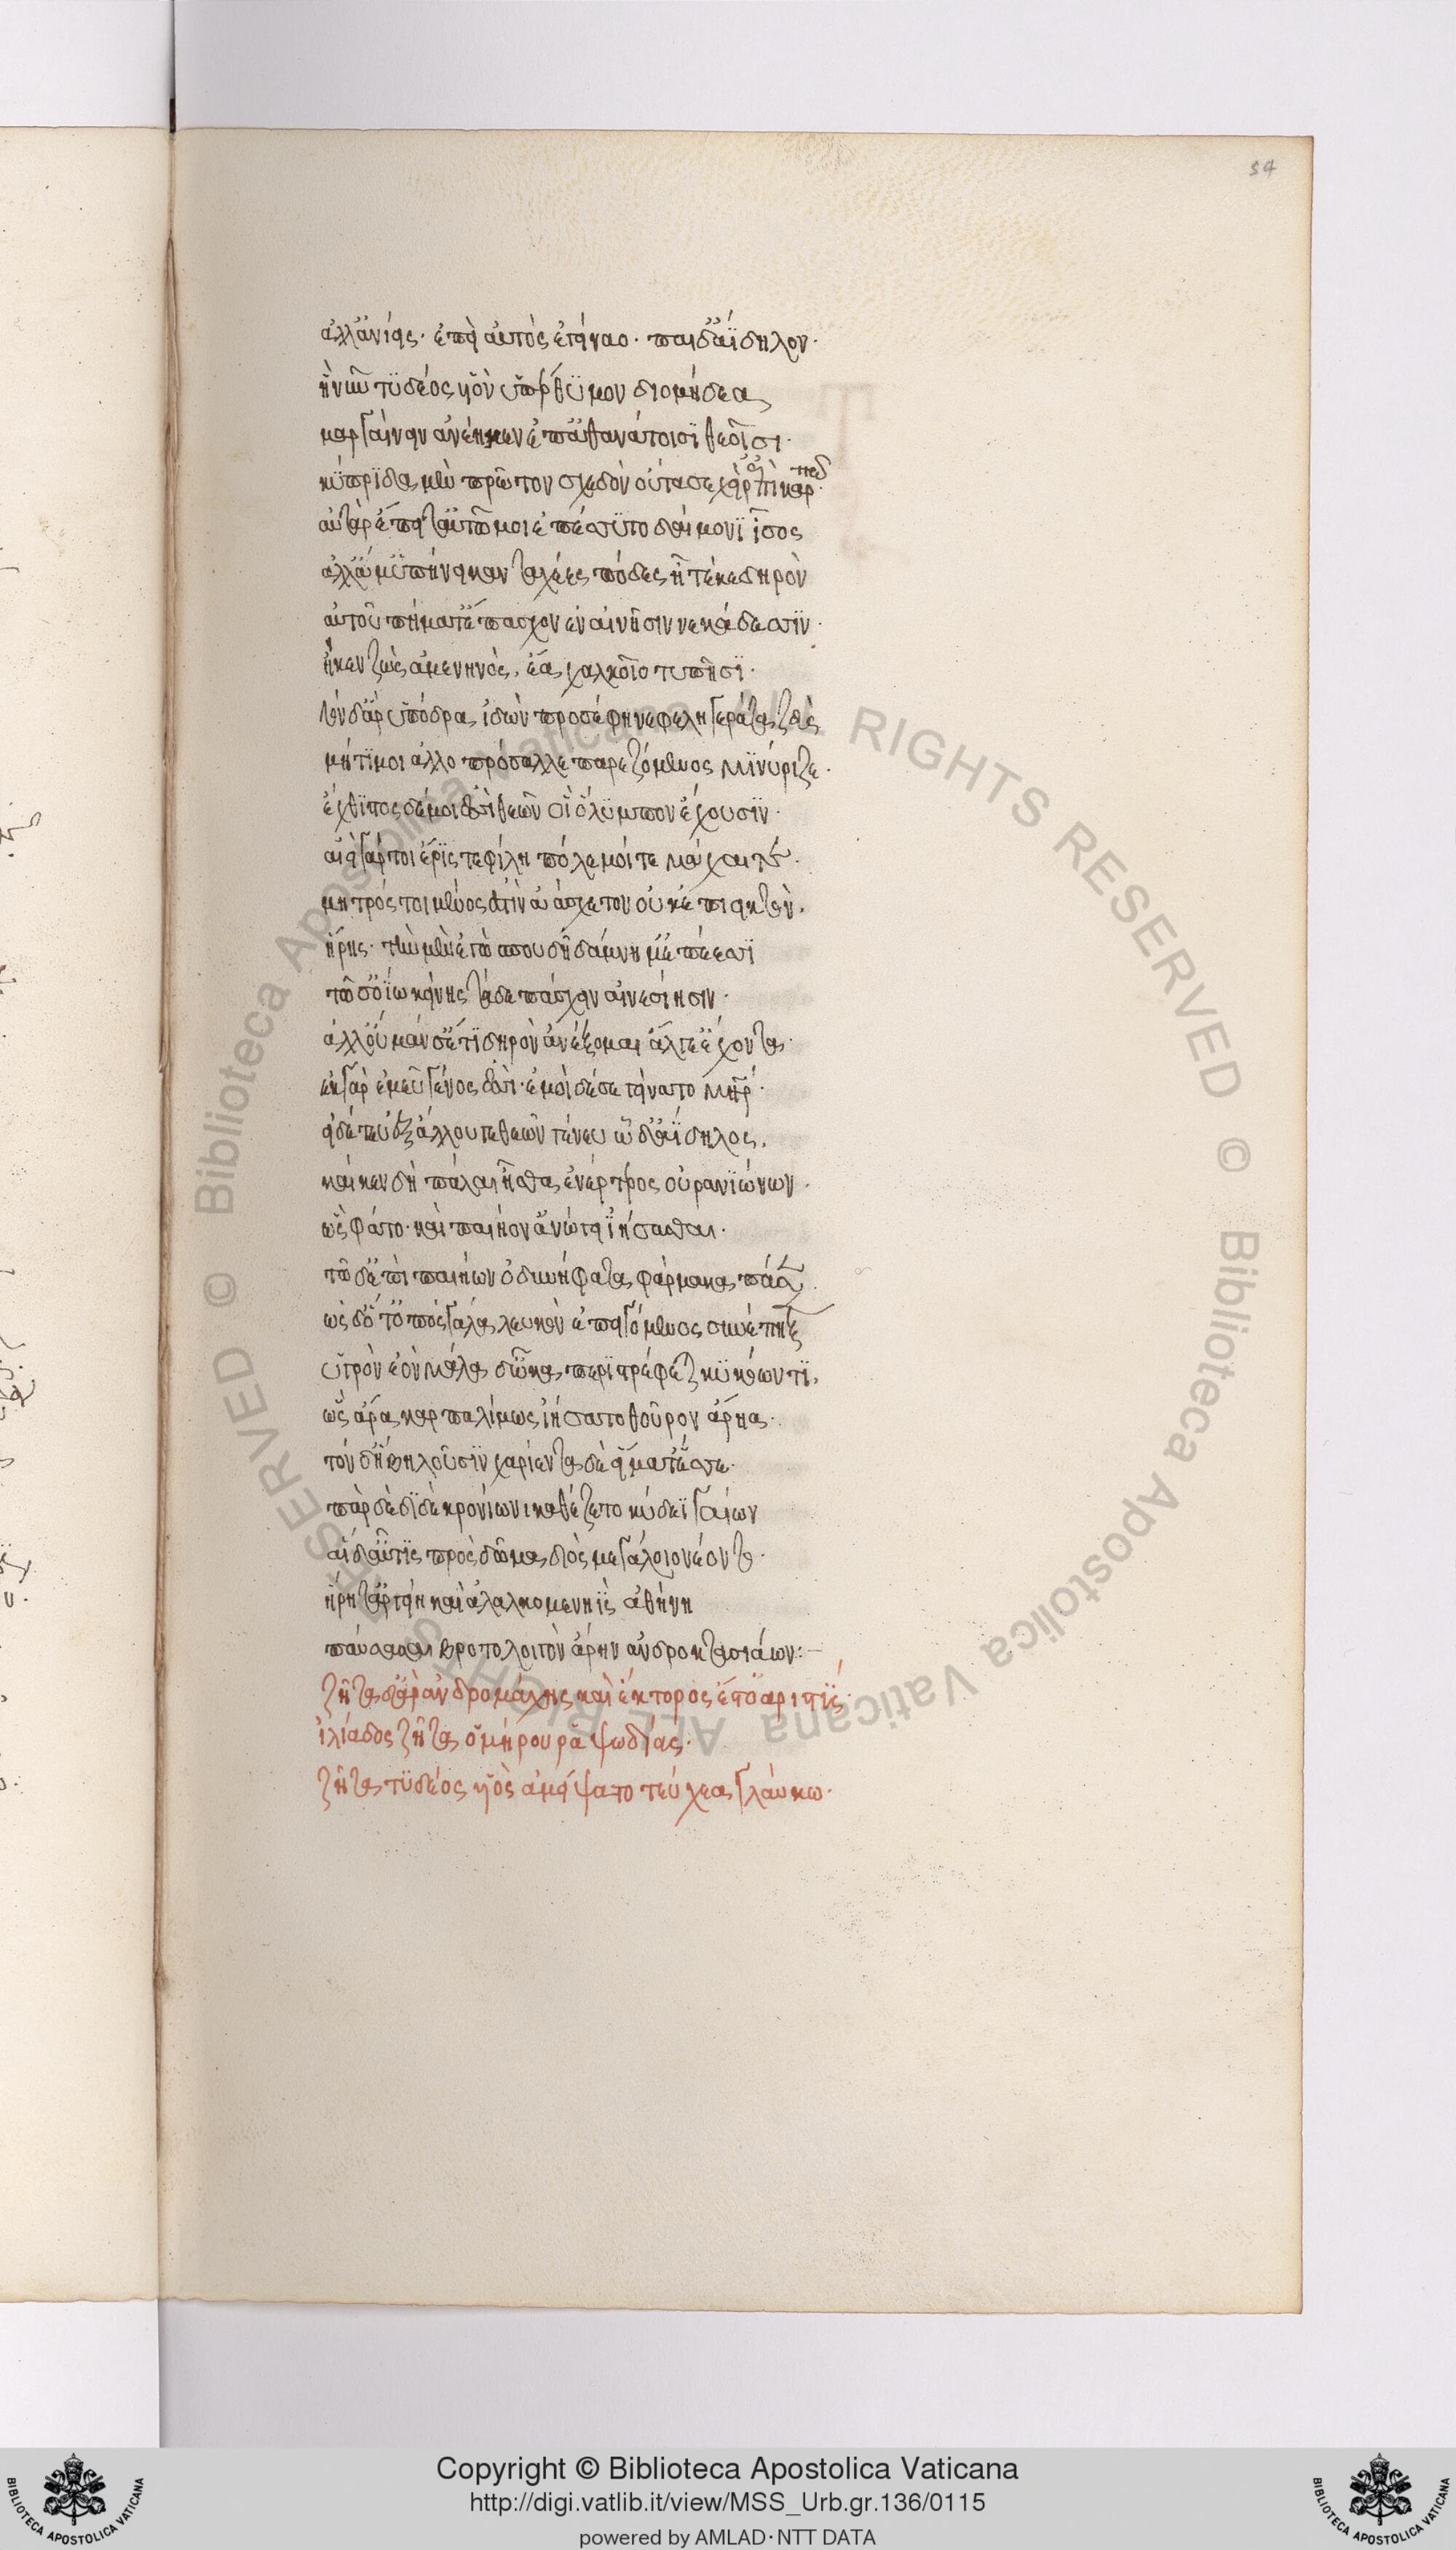 54
ἀλλ' ἀνίεις· ἐπεὶ αὐτὸς ἐγείναο· παῖδ' ἀΐδηλον·
ἣ νῦν τυδέος υἱὸν ὑπέρθυμον διομήδεα
μαργαίνειν ἀνέηκεν ἐπ' ἀθανάτοισι θεοῖσι·
κύπριδα μὲν πρῶτον σχεδὸν οὔτασε χεῖρ' ἐπὶ καρπ
αὐτὰρ ἔπειτ' αὐτῶ μοι ἐπέσσυτο δαίμονι ἶσος
ἀλλά μ' ὑπήνεικαν ταχέες πόδες ἦ τέ κε δηρὸν
αὐτοῦ πήματ' ἔπασχον ἐν αἰνῆσιν νεκάδεσσιν·
ἤ κεν ζὼς ἀμενηνὸς, ἔα χαλκοῖο τυπῆσι·
τὸν δ' ἄρ' ὑπόδρα ἰδὼν προσέφη νεφεληγερέτα ζεὺς
μή τί μοι ἀλλοπρόσαλλε παρεζόμενος μινύριζε·
ἔχθιστος δέ μοι ἐσσὶ θεῶν οἳ ὄλυμπον ἔχουσιν·
αἰεὶ γάρ τοι ἔρις τε φίλη πόλεμοί τε μάχαι τε·
μητρός τοι μένος ἐστὶν ἀάσχετον οὐκ ἐπιεικτὸν,
ἥρης· τὴν μὲν ἐγὼ σπουδῆ δάμνημ' ἐπέεσσι
τῶ σ' ὀΐω κείνης τάδε πάσχειν ἐννεσίησιν·
ἀλλ' οὐ μάν σ' ἔτι δηρὸν ἀνέξομαι ἄλγε' ἔχοντα·
ἐκ γὰρ ἐμεῦ γένος ἐσσὶ· ἐμοὶ δέ σε γείνατο μήτηρ·
εἰ δέ τευ ἐξ ἄλλου γε θεῶν γένευ ὧδ' ἀΐδηλος,
καί κεν δὴ πάλαι ἦσθα ἐνέρτερος οὐρανιώνων·
ὣς φάτο· καὶ παιήον' ἀνώγει ἰήσασθαι·
τῶ δ' ἐπὶ παιήων ὀδυνήφατα φάρμακα πάσσων
ὡς δ' ὅτ' ὀπὸς γάλα λευκὸν ἐπειγόμενος συνέπηξεν
ὑγρὸν ἐὸν μάλα δ' ὦκα περιτρέφεται κυκόωντι,
ὣς ἄρα καρπαλίμως ἰήσατο θοῦρον ἄρηα·
τὸν δ' ἥβη λοῦσεν χαρίεντα δὲ εἵματ' ἕσσε·
πὰρ δὲ διὶ κρονίωνι καθέζετο κύδεϊ γαίων
αἱ δ' αὖτις πρὸς δῶμα διὸς μεγάλοιο νέοντο·
ἥρη τ' ἀργείη καὶ ἀλαλκομενηῒς ἀθήνη
παύσασαι βροτολοιγὸν ἄρην ἀνδροκτασιάων:—
ζῆτα δ' ἄρ' ἀνδρομάχης καὶ ἕκτορος ἔστ' ὀαριστύς·
ἰλιάδος ζῆτα ὁμήρου ῥαψωδίας·
ζῆτα τυδέος υἱὸς ἀμείψατο τεύχεα γλαύκω·
Copyright © Biblioteca Apostolica Vaticana
http://digi.vatlib.it/view/MSS_Urb.gr.136/0115
powered by AMLAD·NTT DATA